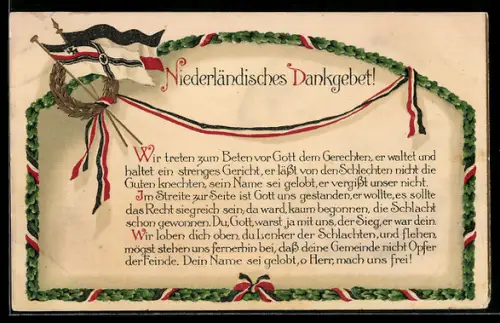 Niederländisches Dankgebet!
Wir treten zum Beten vor Gott dem Gerechten, er waltet und
haltet ein strenges Gericht, er läßt von den Schlechten nicht die
Guten knechten, sein Name sei gelobt, er vergißt unser nicht.
Im Streite zur Seite ist Gott uns gestanden, er wollte, es sollte
das Recht siegreich sein, da ward, kaum begonnen, die Schlacht
schon gewonnen. Du, Gott, warst ja mit uns, der Sieg, er war dein.
Wir loben dich oben, du Lenker der Schlachten, und flehen,
mögst stehen uns fernerhin bei, daß deine Gemeinde nicht Opfer
der Feinde. Dein Name sei gelobt, o Herr, mach uns frei!